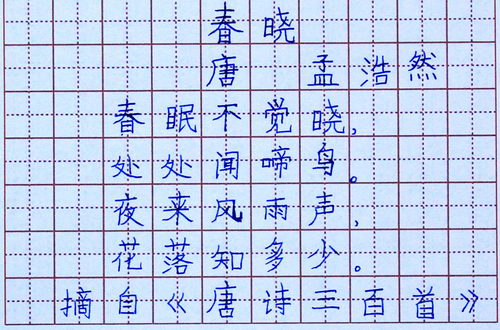 春晓
唐 孟浩然
春眠不觉晓,
处处闻啼鸟。
夜来风雨声,
花落知多少。
摘自《唐诗三百首》